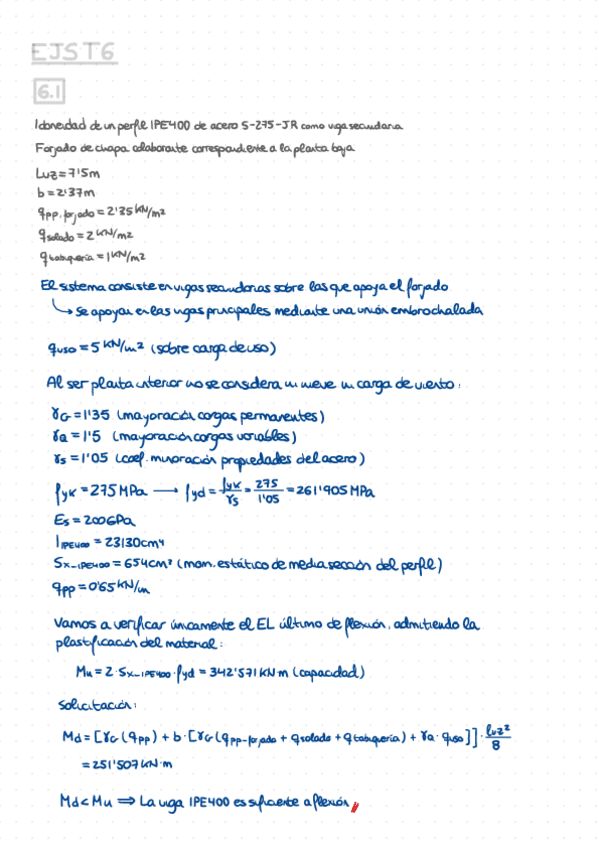 EJS T6
6.1
Idoneidad de un perfil IPE400 de acero S-275-JR como viga secundaria
Forjado de chapa colaborante correspondiente a la planta baja
Luz = 7'5m
b = 2'37m
qpp.forjado = 2'35 kN/m²
qsolado = 2 kN/m²
qtabiquería = 1 kN/m²
El sistema consiste en vigas secundarias sobre las que apoya el forjado
↳ Se apoyan en las vigas principales mediante una unión embrochalada
quso = 5 kN/m² (sobre carga de uso)
Al ser planta interior no se considera ni nieve ni carga de viento:
γG = 1'35 (mayoración cargas permanentes)
γQ = 1'5 (mayoración cargas variables)
γs = 1'05 (coef. minoración propiedades del acero)
fyk = 275 MPa → fyd = fyk/γs = 275/1'05 = 261'905 MPa
Es = 200GPa
IIPE400 = 23130cm⁴
Sx-IPE400 = 654cm³ (mom. estático de media sección del perfil)
qpp = 0'65 kN/m
Vamos a verificar únicamente el EL último de flexión, admitiendo la
plastificación del material:
Mu = 2·Sx-IPE400·fyd = 342'571 kN·m (capacidad)
Solicitación:
Md = [γG(qpp) + b·[γG(qpp-forjado + qsolado + qtabiquería) + γQ·quso]]·luz²/8
= 251'507 kN·m
Md < Mu ⇒ La viga IPE400 es suficiente a flexión